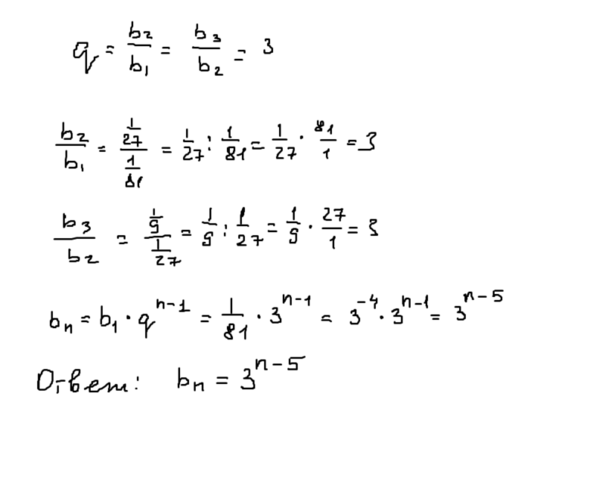 q = b₂/b₁ = b₃/b₂ = 3
b₂/b₁ = (1/27)/(1/81) = 1/27 : 1/81 = 1/27 · 81/1 = 3
b₃/b₂ = (1/9)/(1/27) = 1/9 : 1/27 = 1/9 · 27/1 = 3
bₙ = b₁ · qⁿ⁻¹ = 1/81 · 3ⁿ⁻¹ = 3⁻⁴ · 3ⁿ⁻¹ = 3ⁿ⁻⁵
Ответ: bₙ = 3ⁿ⁻⁵